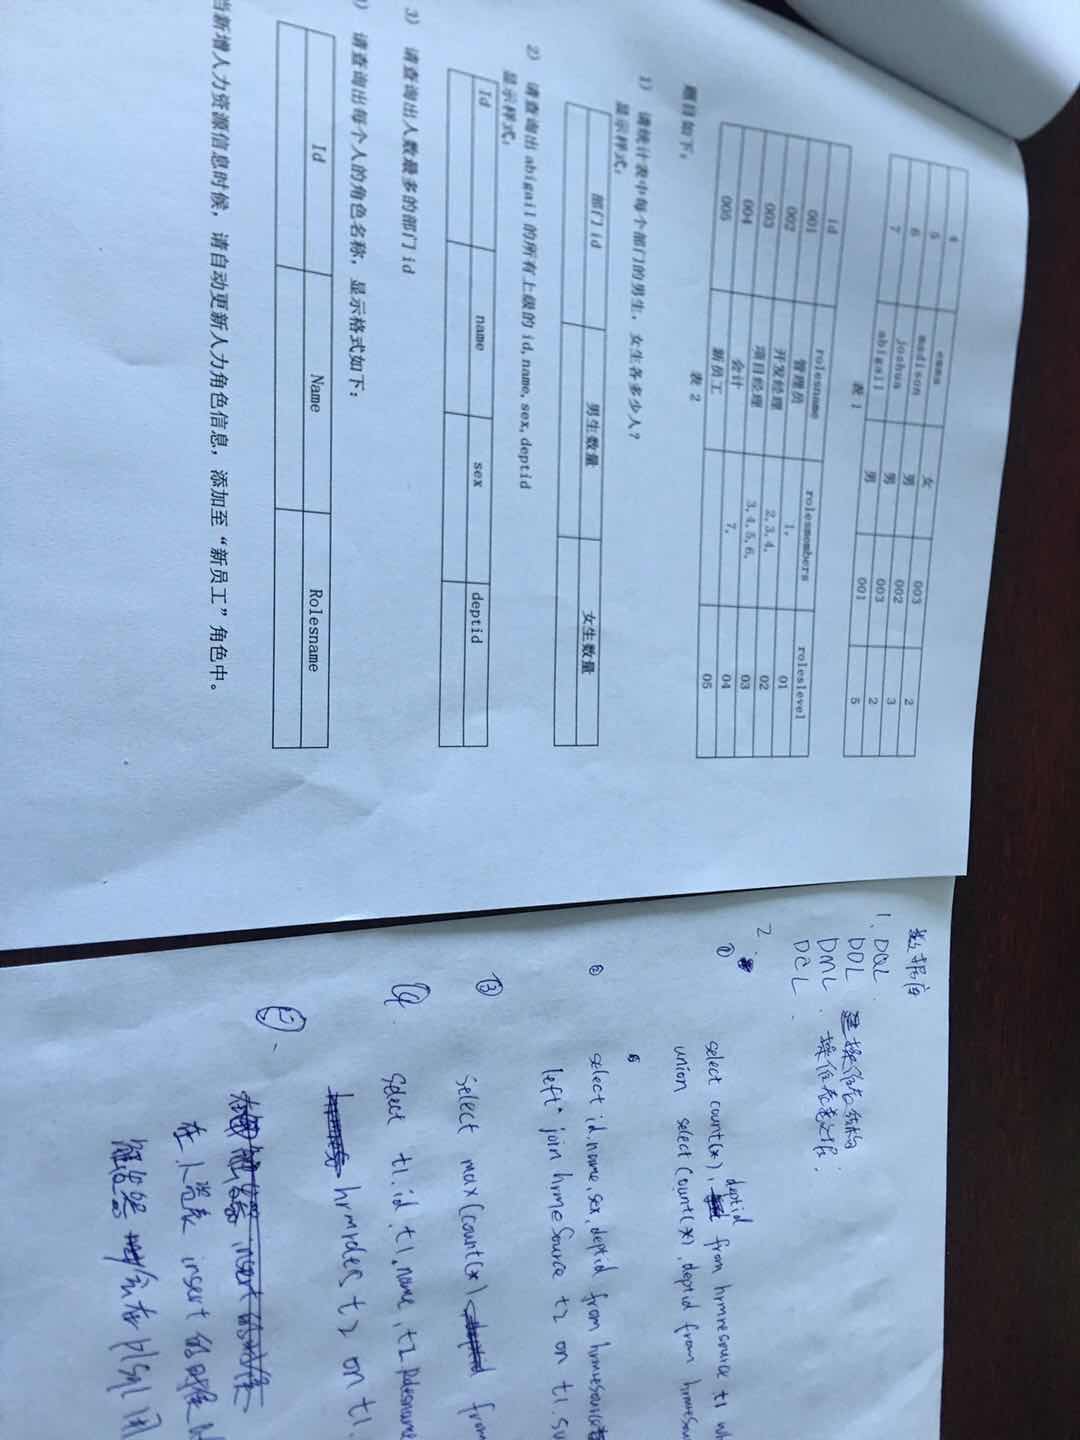 4 女 003 2
5 madison 男 002 3
6 joshua 男 003 2
7 abigail 男 001 5
表 1
id rolesname rolesmembers roleslevel
001 管理员 1, 01
002 开发经理 2,3,4, 02
003 项目经理 3,4,5,6, 03
004 会计 7, 04
005 新员工 05
表 2
题目如下:
1) 请统计表中每个部门的男生,女生各多少人?
显示样式:
部门 id 男生数量 女生数量
2) 请查询出 abigail 的所有上级的 id,name,sex,deptid
显示样式:
Id name sex deptid
3) 请查询出人数最多的部门 id
) 请查询出每个人的角色名称，显示格式如下:
Id Name Rolesname
当新增人力资源信息时候，请自动更新人力角色信息，添加至“新员工”角色中。
数据库
1. DQL
DDL 操作表结构
DML 操作表数据
DCL
2.
① select count(*), deptid from hrmresource t1 wh
union select count(*), deptid from hrmresou
② select id,name,sex,deptid from hrmresource
left join hrmeSource t2 on t1.su
③ select max(count(*) from
④ select t1.id,t1.name,t2.Rolesname
hrmroles t2 on t1.
在触发器 insert 的时候
在人资表 insert 的时候
触发器 会在 plsql